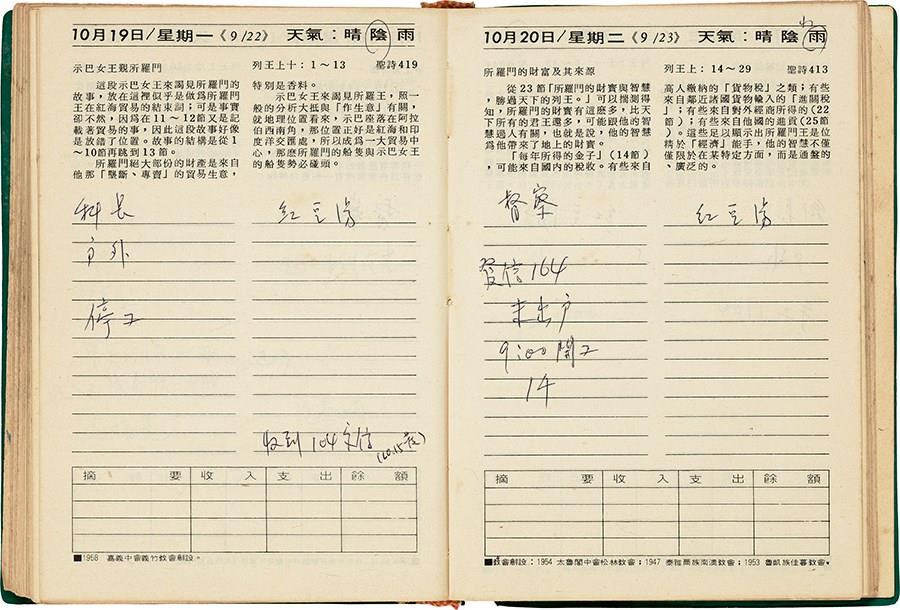 10月19日/星期一《9/22》 天氣：晴 陰 雨
示巴女王覲所羅門
列王上十：1～13 聖詩419
這段示巴女王來謁見所羅門的
故事，放在這裡似乎是做為所羅門
王在紅海貿易的結束詞；可是事實
卻不然，因為在11～12節又是記
載著貿易的事，因此這段故事好像
是放錯了位置。故事的結構是從1
～10節再跳到13節。
所羅門絕大部份的財產是來自
他那「壟斷、專賣」的貿易生意，
特別是香料。
示巴女王來謁見所羅王，照一
般的分析大抵與「作生意」有關，
就地理位置看來，示巴是在阿拉
伯西南角，那位置正好是紅海和印
度洋交匯處，所以成為一大貿易中
心，那麽所羅門的船隻與示巴女王
的船隻勢必碰頭。
科長
戶外
停工
紅豆湯
收到104家信
(10.15發)
摘 要 收 入 支 出 餘 額
■1958 嘉義中會義竹教會創設。
10月20日/星期二《9/23》 天氣：晴 陰 雨
所羅門的財富及其來源
列王上：14～29 聖詩413
從23節「所羅門的財寶與智慧
，勝過天下的列王。」可以揣測得
知，所羅門的財富有這麽多，比天
下所有的王還多，可能跟他的智慧
過人有關，也就是說，他的智慧
為他帶來了地上的財富。
「每年所得的金子」（14節）
，可能來自國內的稅收。有些來自
高人繳納的「貨物稅」之類；有些
來自鄰近諸國貨物輸入的有關稅
」；有些來自對外經商所得（22
節）；有些來自他國人的進貢（25
節）。這些足以顯示出所羅門王是位
精於「經濟」能手，他的智慧不僅
僅限於在某特定方面，而是通盤的
、廣泛的。
督察
發信164
未出戶
9:00開工
14
紅豆湯
摘 要 收 入 支 出 餘 額
■教會創設：1954 太魯閣中會松林教會；1947 泰雅爾族南澳教會；1953 魯凱族佳暮教會。